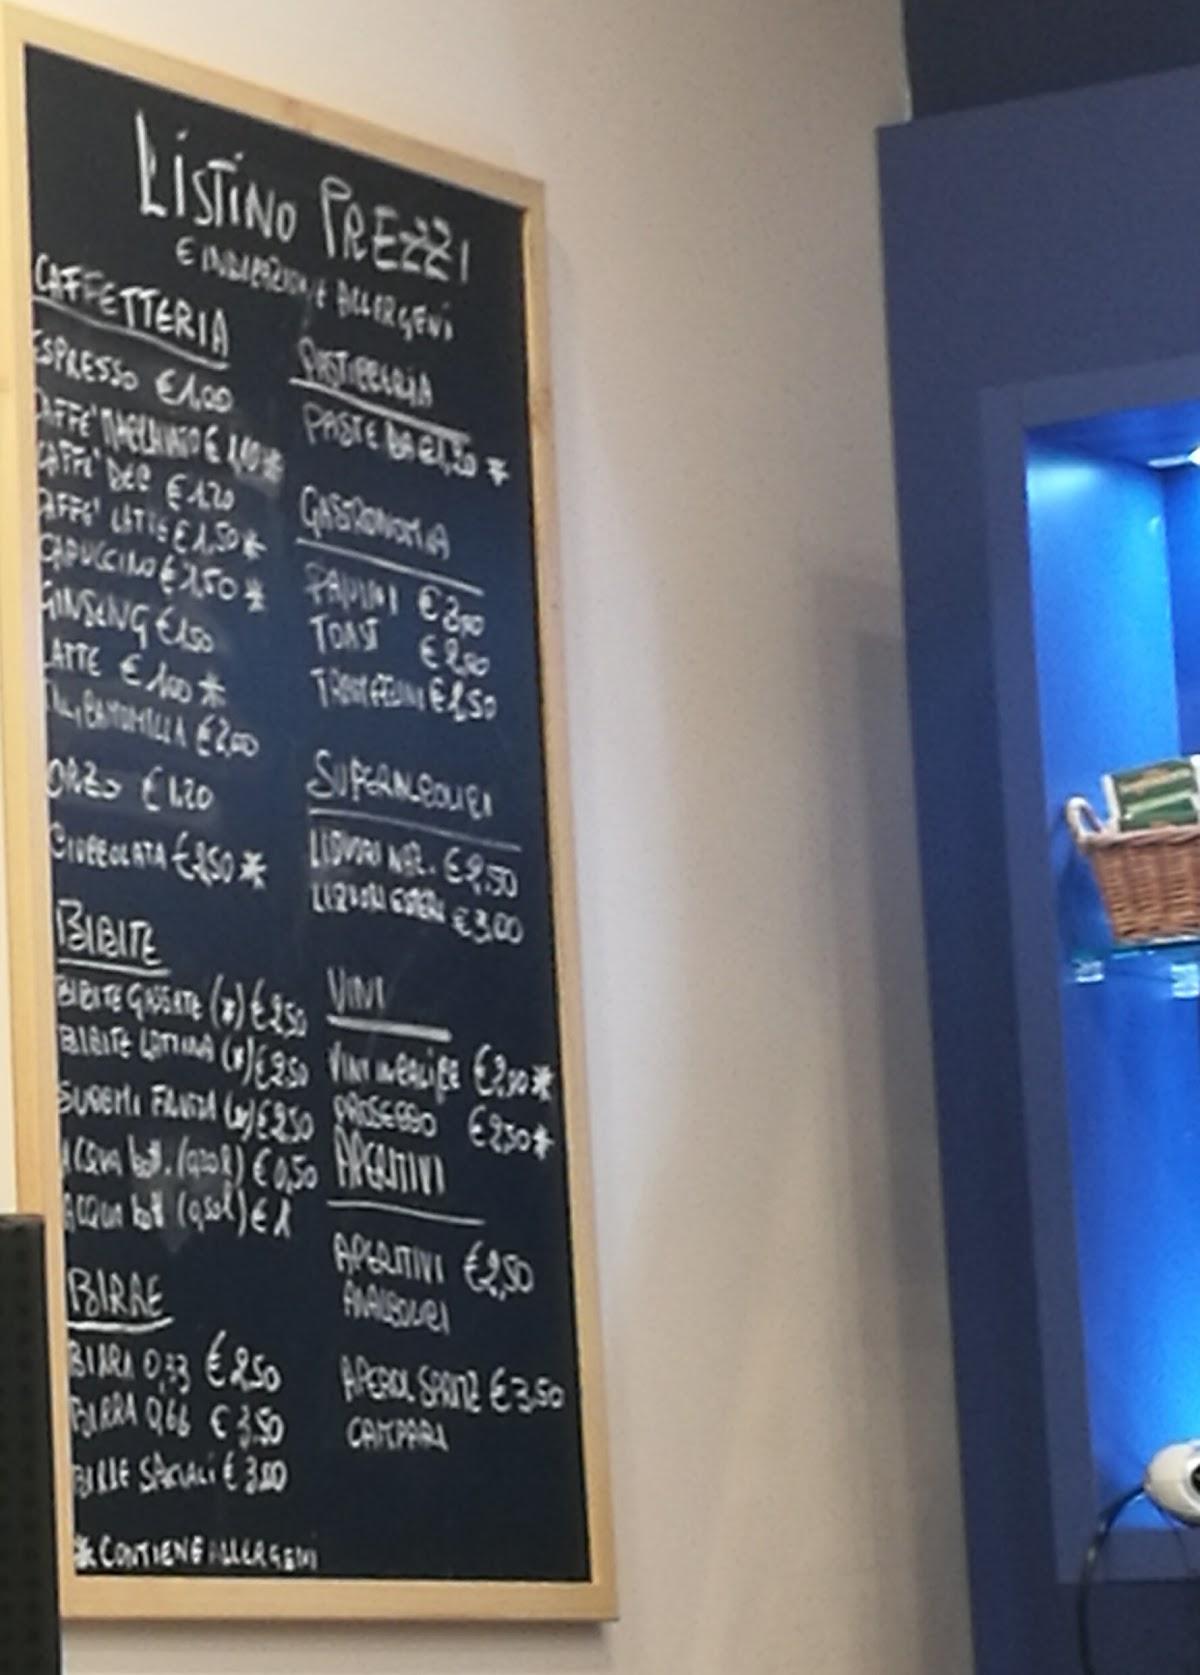 LISTINO PREZZI
E INDICAZIONE ALLERGENI
CAFFETTERIA
ESPRESSO €1,00
CAFFE' MACCHIATO € 1,10 *
CAFFE' DEC €1,20
CAFFE' LATTE €1,50 *
CAPUCCINO €1,50 *
GINSENG €1,50
LATTE €1,00 *
CAMOMILLA €2,00
ORZO €1,20
CIOCCOLATA €2,50 *
BIBITE
BIBITE GASSATE (*) €2,50
BIBITE LATTINA (*) €2,50
SUCCHI FRUTTA (*) €2,50
ACQUA bott. €0,50
ACQUA bott (0,50l) € 1
BIRRE
BIRRA 0,33 €2,50
BIRRA 0,66 €3,50
BIRRE SPECIALI €3,00
* CONTIENE ALLERGENI
PASTICCERIA
PASTE DA €1,20 *
GASTRONOMIA
PANINI
TOAST
TRAMEZZINI
SUPERALCOLICI
LIQUORI NAZ. €2,50
LIQUORI ESTERI €3,00
VINI
VINI IN CALICE €2,00 *
PROSECCO €2,50 *
APERITIVI
APERITIVI €2,50
ANALCOLICI
APEROL SPRITZ €3,50
CAMPARI